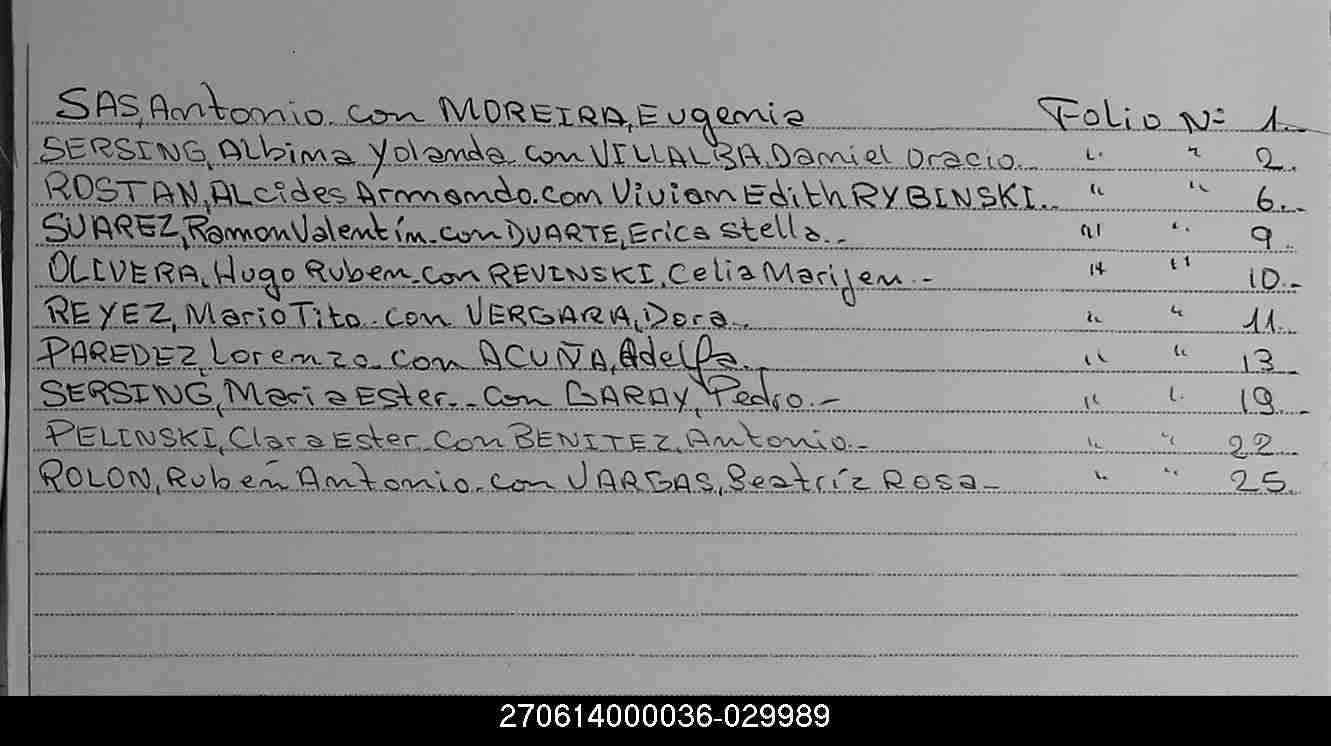 SAS, Antonio. con MOREIRA, Eugenia Folio Nº 1.
SERSING, Albina Yolanda con VILLALBA, Daniel Oracio.. " " 2.
ROSTAN, ALcides Armando. con Vivian Edith RYBINSKI.. " " 6.
SUAREZ, Ramon Valentín. con DUARTE, Erica Stella.. " " 9.
OLIVERA, Hugo Ruben. con REVINSKI, Celia Marijen.- " " 10.-
REYEZ, Mario Tito. con VERGARA, Dora. " " 11.
PAREDEZ, Lorenzo. con ACUÑA, Adelfa. " " 13
SERSING, Maria Ester.. Con GARAY, Pedro.- " " 19.
PELINSKI, Clara Ester. Con BENITEZ, Antonio.- " " 22
ROLON, Rubén Antonio. con VARGAS, Beatríz Rosa- " " 25.
270614000036-029989